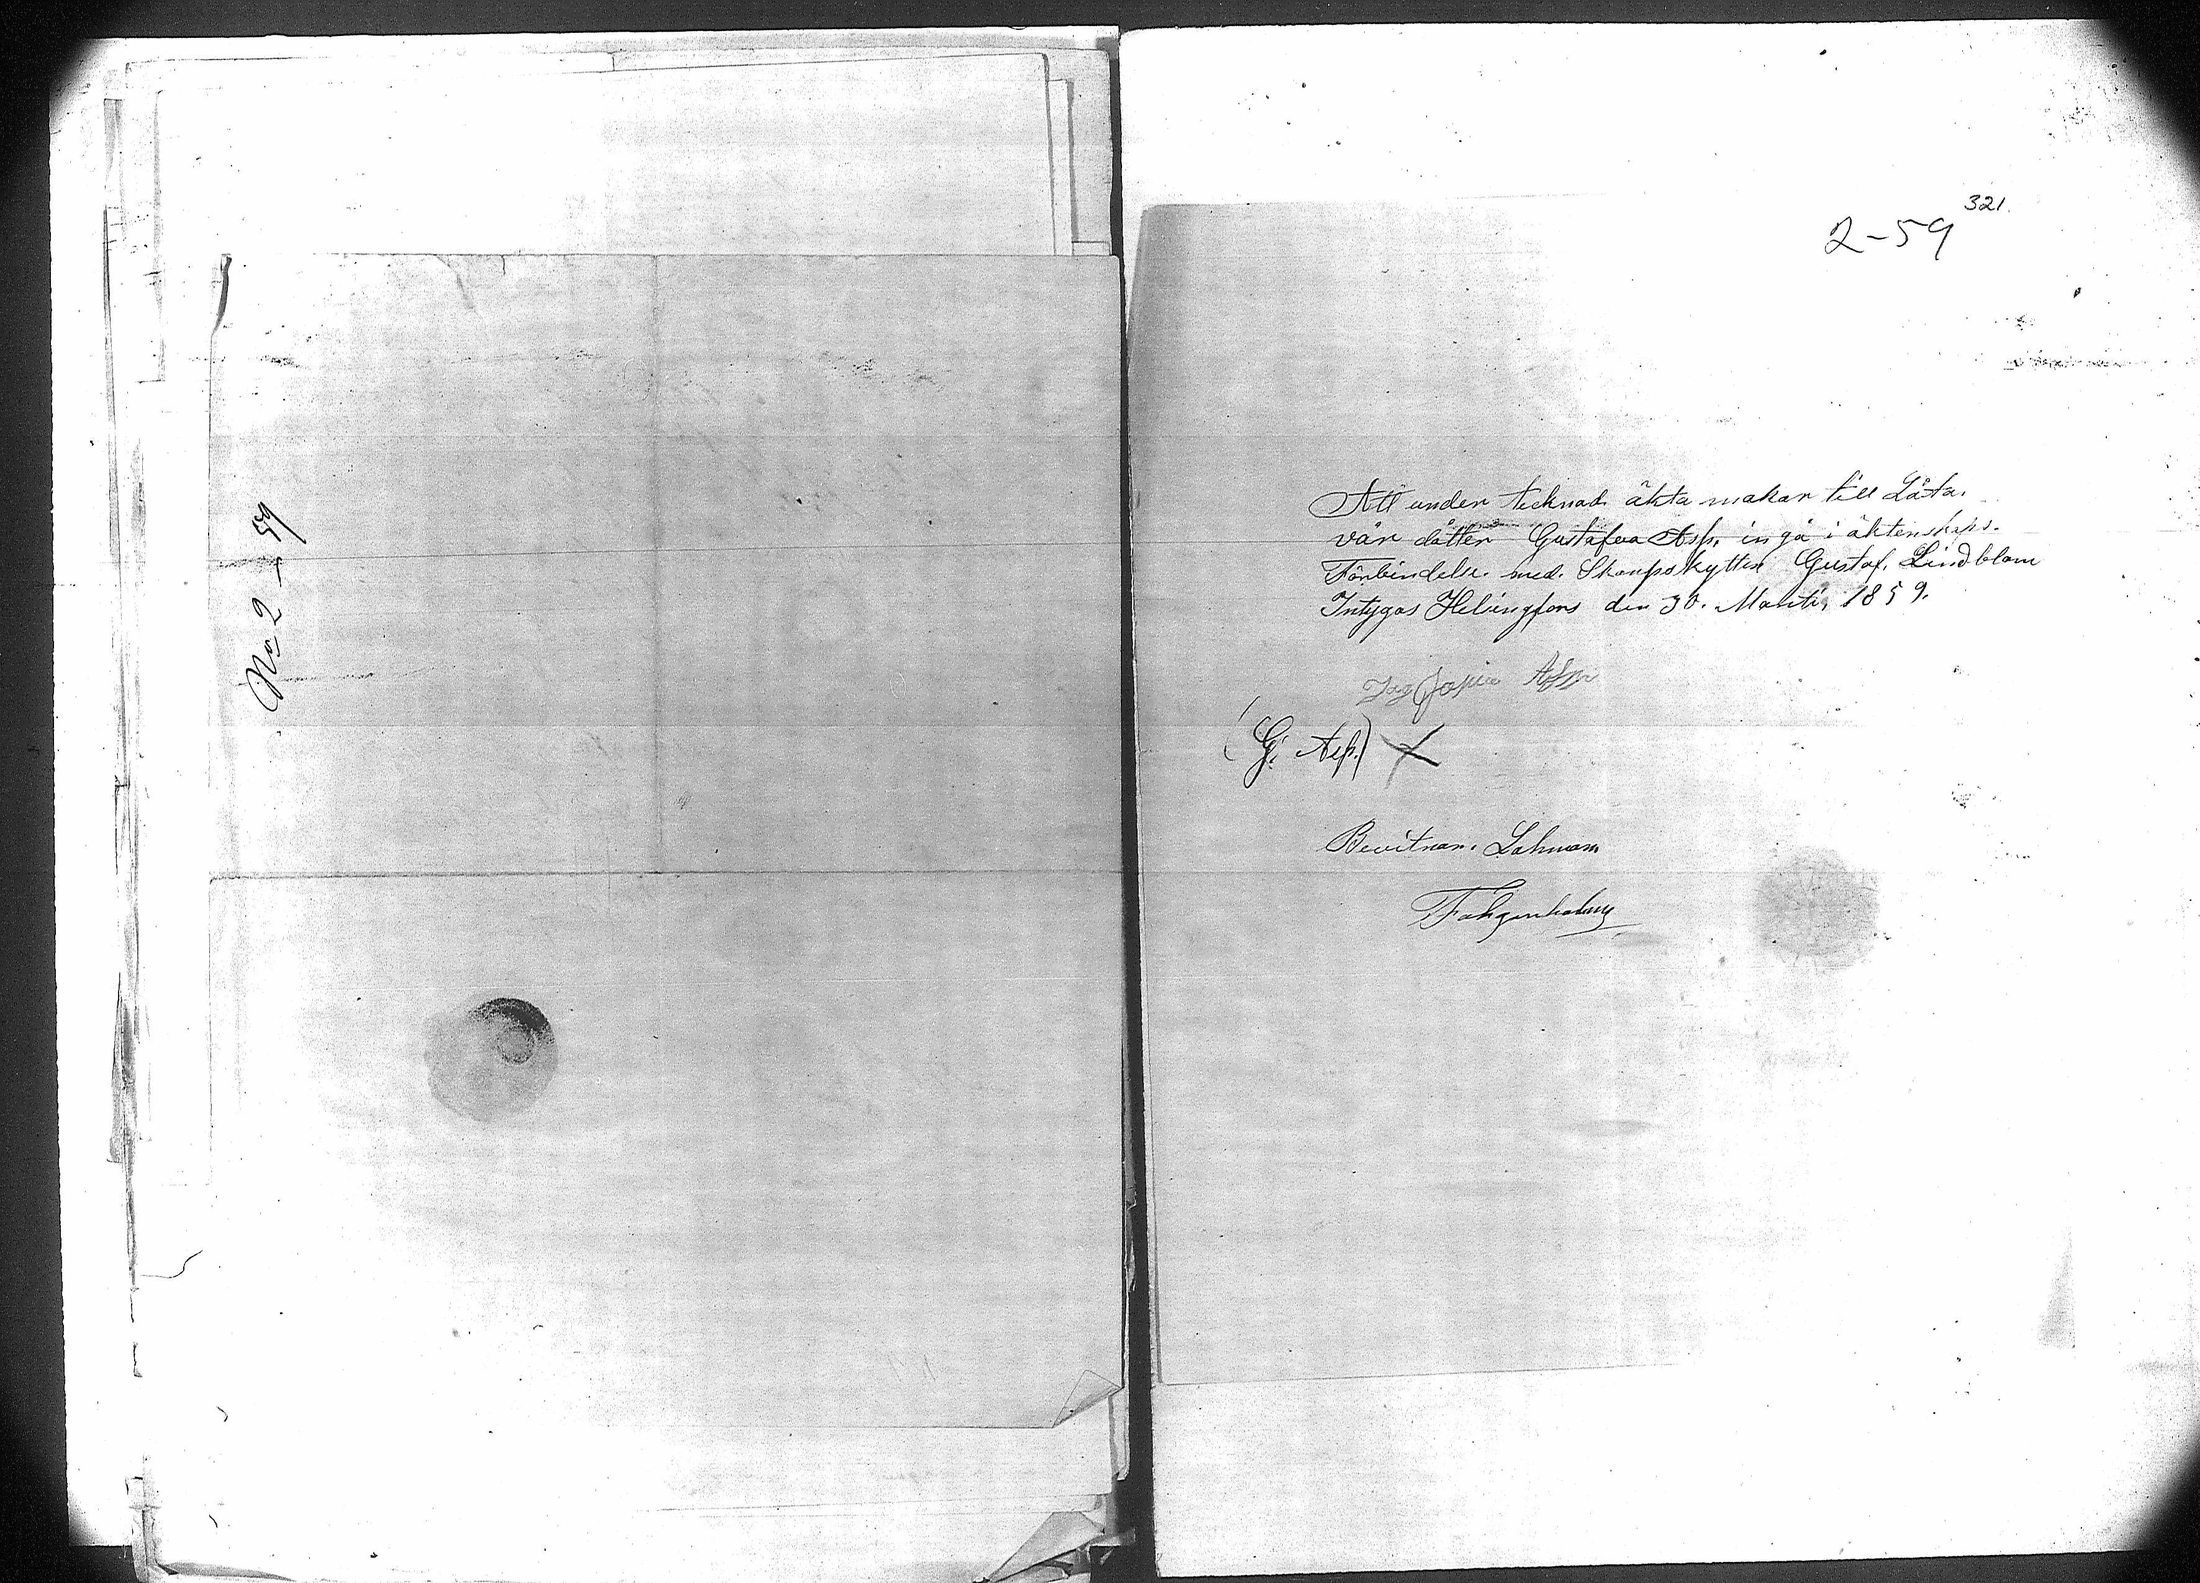 No 2 - 59
321.
2-59
Att under tecknad. äkta makar till Låta.
vår dotter Gustafva Asp. ingå i äktenskaps.
Förbindelse. med. Skarpskytten Gustaf. Lindblom
Intygas Helsingfors den 30. Martii, 1859.
Jag Sofia Asp
(G. Asp.) X
Bevitnar. Lahman